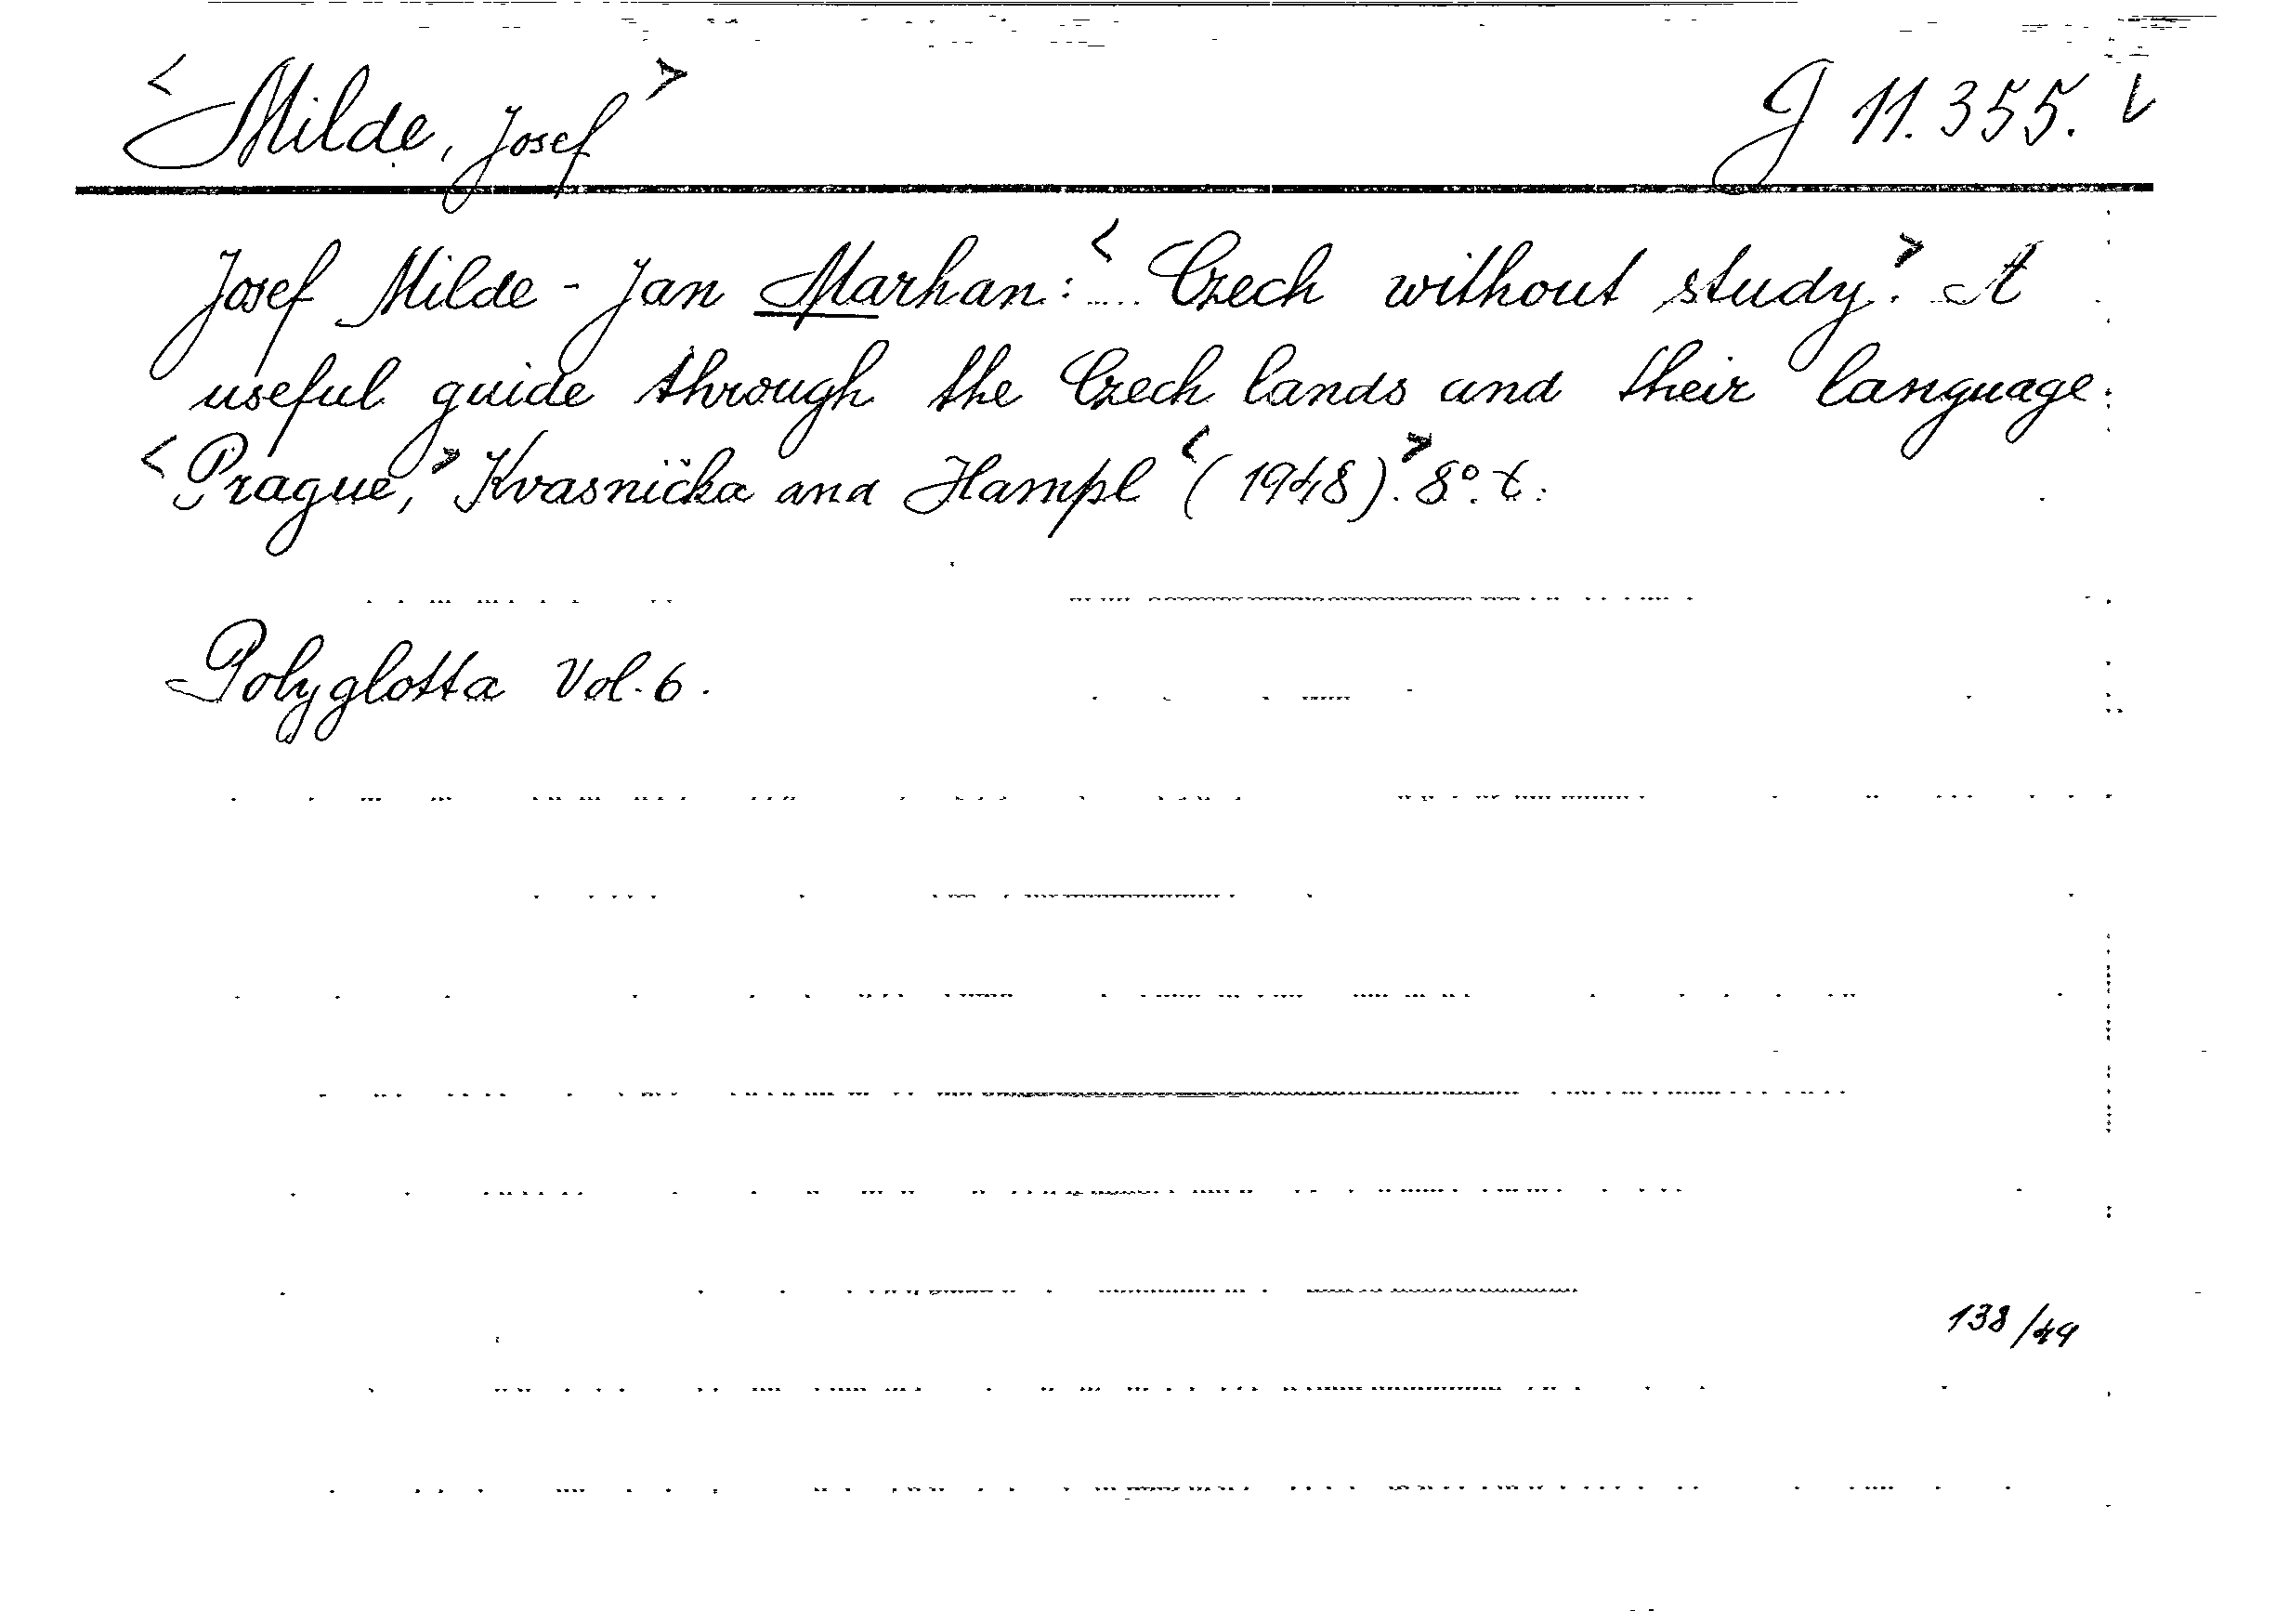 <Milde, Josef> J 11.355.
Josef Milde - Jan Marhan: <Czech without study.> A
useful guide through the Czech lands and their language.
<Prague,> Kvasnička and Hampl <(1948).> 8°. t.
Polyglotta Vol. 6.
138/49